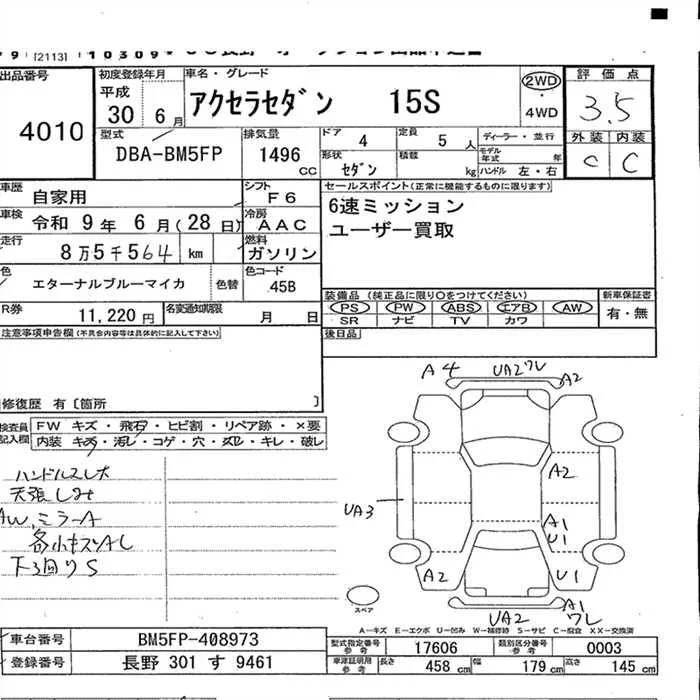 [2113] 10309
出品番号
4010
初度登録年月
平成
30 6月
車名・グレード
アクセラセダン 15S
2WD
・
4WD
評価点
3.5
外装 内装
C C
型式
DBA-BM5FP
排気量
1496 CC
ドア
4
定員
5人
形状
セダン
積載
kg
ディーラー・並行
モデル年式 年
ハンドル 左・右
車歴
自家用
シフト
F6
車検
令和 9年 6月(28日)
冷房
AAC
走行
8万5千564 km
燃料
ガソリン
色
エターナルブルーマイカ
色替
色コード
45B
R券
11,220円
名変通知期限
月 日
セールスポイント(正常に機能するものに限ります)
6速ミッション
ユーザー買取
装備品 (純正品に限り○をつけてください)
PS PW ABS エアB AW
SR ナビ TV カワ
新車保証書
有・無
後日品
注意事項申告欄(不具合内容等は具体的に記入して下さい)
修復歴 有〔箇所 〕
検査員記入欄
FW キズ・飛石・ヒビ割・リペア跡・×要
内装 キズ・汚レ・コゲ・穴・ヌレ・キレ・破レ
ハンドルスレ大
天張しみ
AW、ミラーA
各小キズAし
下廻りS
A4 UA2ワレ A2
A2
UA3
A1
U1
A2
U1
UA2
A1
ワレ
スペア
A－キズ E－エクボ U－凹み W－補修跡 S－サビ C－腐食 XX－交換済
車台番号
BM5FP-408973
登録番号
長野 301 す 9461
型式指定番号 参考
17606
類別区分番号 参考
0003
車津証明用 参考
長さ 458 cm
幅 179 cm
高さ 145 cm